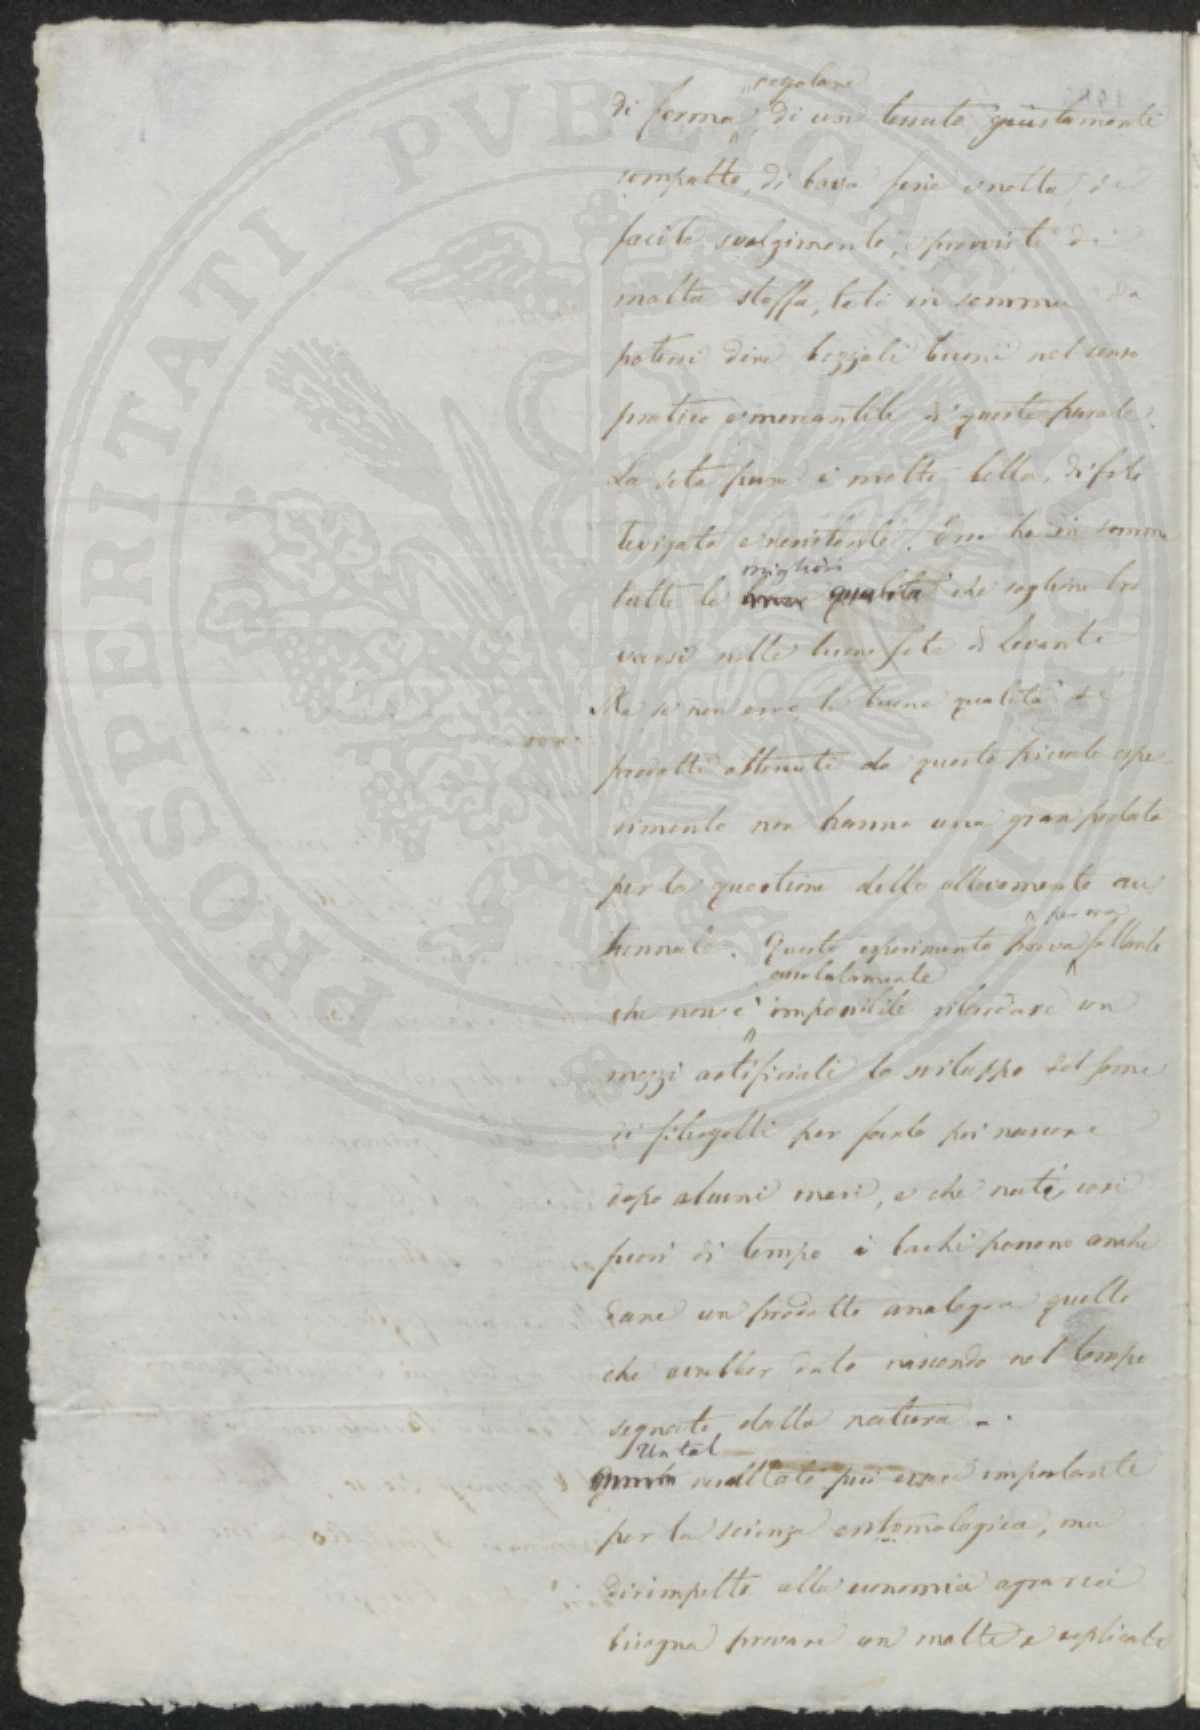 PROSPERITATI PUBLICAE AUGENDAE
regolare
di forma, di un tessuto giustamente
compatto, di bava fine e netta, di
facile svolgimento, e provvisti di
molta stoffa, tali in somma da
potersi dire bozzoli buoni nel senso
pratico e mercantile di queste parole.
La seta pure è molto bella, di filo
levigato e resistente. Essa ha in somma
migliori
tutte le qualità che sogliono tro
varsi nelle buone sete di levante
Ma se non erro le buone qualità dei
prodotti ottenuti da questo piccolo espe
rimento non hanno una gran portata
per la questione dello allevamento au
tunnale. Questo esperimento prova soltanto
per ora
assolutamente
che non è impossibile ritardare con
mezzi artificiali lo sviluppo del seme
di filugelli per farlo poi nascere
dopo alcuni mesi, e che nati così
fuori di tempo i bachi possono anche
dare un prodotto analogo a quello
che avrebber dato nascendo nel tempo
segnato dalla natura -.
Un tal
resultato può esser importante
per la scienza entomologica, ma
dirimpetto alla economia agraria
bisogna provare con molti e replicati